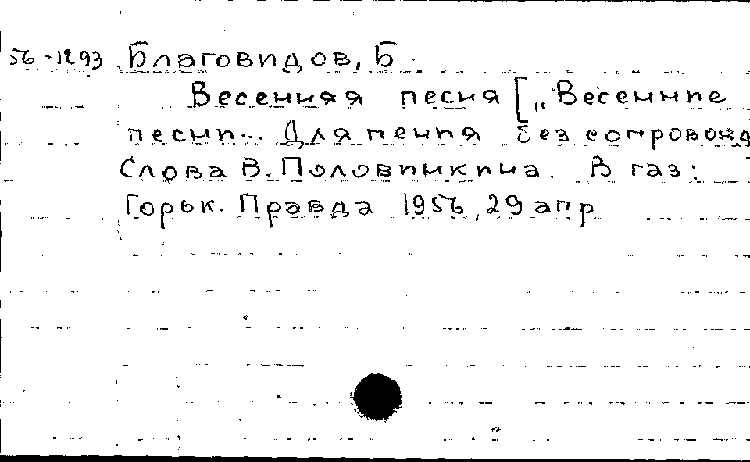 56-1293 Благовидов, Б.
Весенняя песня [„Весенние
песни... Для пения без сопровожд
Слова В. Половинкина. В газ:
Горьк. Правда 1956, 29 апр